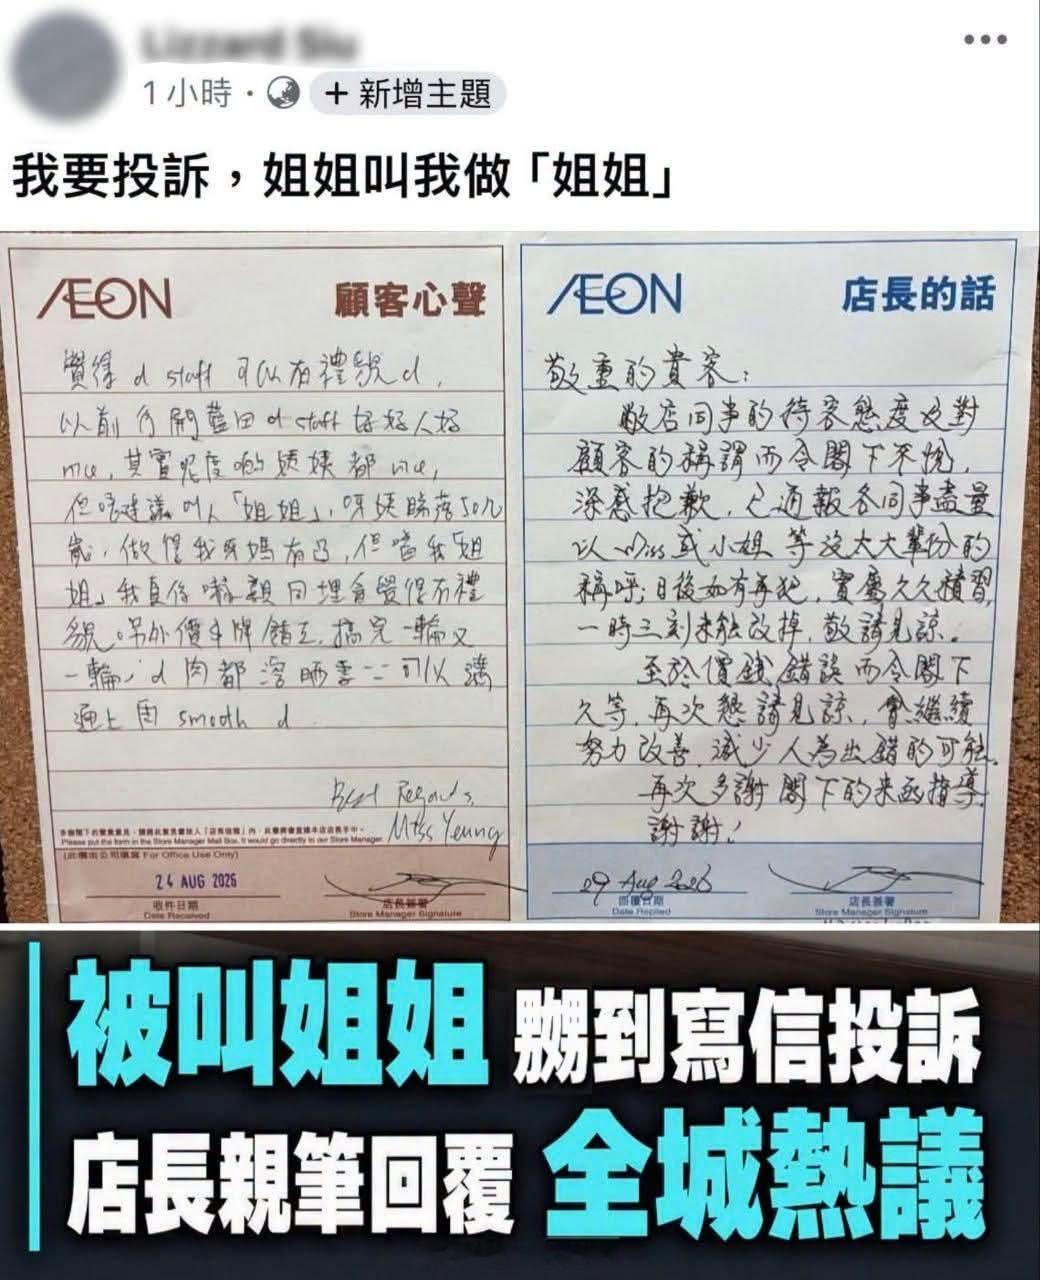 1 小時
+ 新增主題
我要投訴，姐姐叫我做「姐姐」
ÆON 顧客心聲
覺得 d staff 可以有禮貌 d,
以前行開藍田 d staff 好好人好
nice, 其實呢度啲姨姨都 nice,
但唔建議叫人「姐姐」, 呀姨睇落50幾
歲, 做得我呀媽有凸, 但嗌我「姐
姐」我真係嚇親 同埋會覺得冇禮
貌。另外價錢牌錯
一輪, d 肉都溶晒 可以溝
通上面 smooth d
Best Regards,
Miss Yeung
多謝閣下的寶貴意見，請將此意見書放入「店長信箱」內，此書將會直達本店店長手中。
Please put the form in the Store Manager Mail Box. It would go directly to our Store Manager.
(此欄由公司填寫 For Office Use Only)
24 AUG 2026
收件日期 店長簽署
Date Received Store Manager Signature
ÆON 店長的話
敬重的貴客：
敝店同事的待客態度及對
顧客的稱謂而令閣下不悅,
深感抱歉, 已通報各同事盡量
以 miss 或小姐 等沒太大輩份的
稱呼; 日後如有再犯, 實屬久久積習,
一時三刻未能改掉, 敬請見諒。
至於價錢錯誤而令閣下
久等, 再次懇請見諒, 會繼續
努力改善, 減少人為出錯的可能。
再次多謝閣下的來函指導,
謝謝!
29 Aug 2026
回覆日期 店長簽署
Date Replied Store Manager Signature
被叫姐姐 嬲到寫信投訴
店長親筆回覆 全城熱議